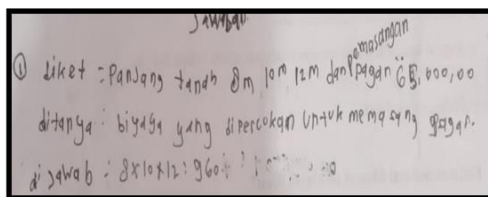 Jawaban
① Diket = Panjang tanah 8m, 10m, 12m dan pemasangan pagan 65,000,00
ditanya : biyaya yang dipercokan untuk memasang pagan.
di jawab : 8x10x12 : 960